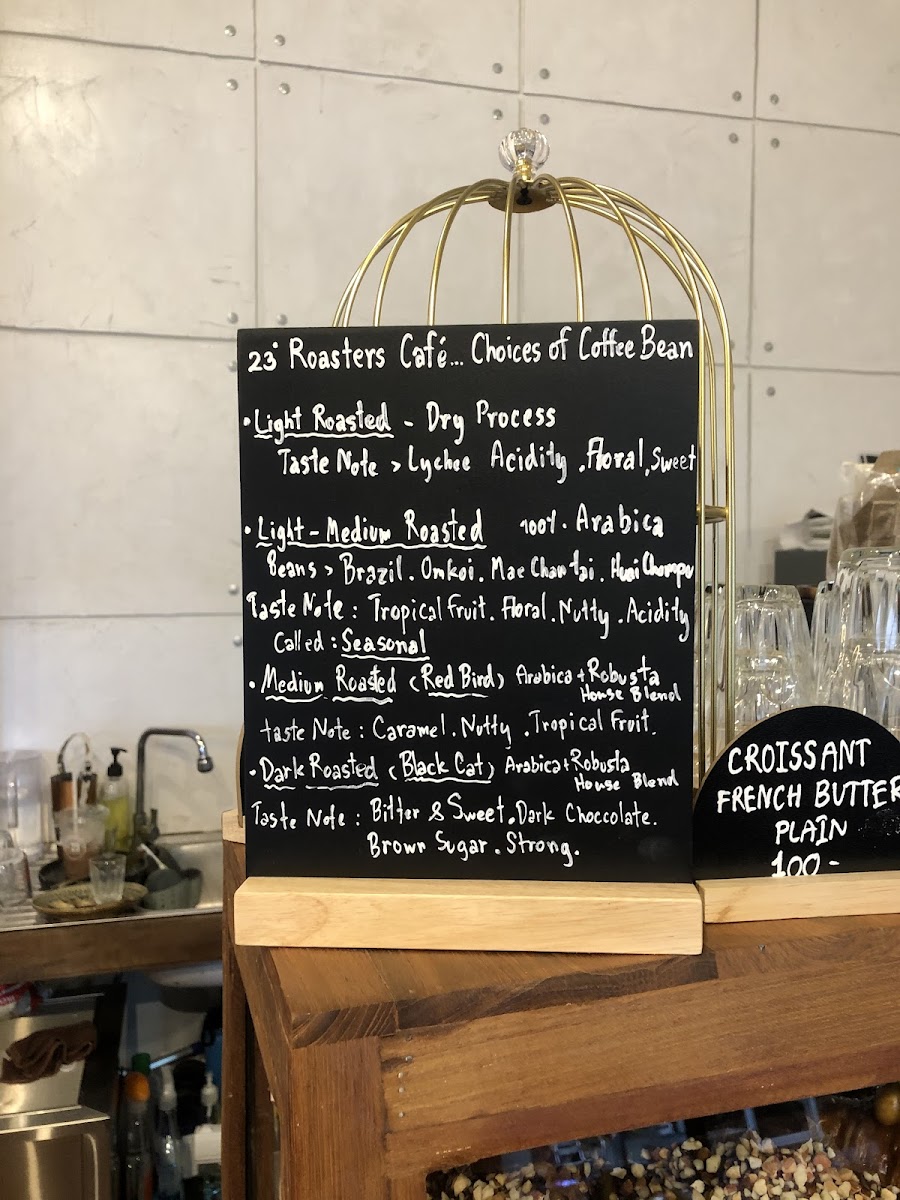 23° Roasters Café... Choices of Coffee Bean
• Light Roasted - Dry Process
Taste Note > Lychee Acidity . Floral, Sweet
• Light - Medium Roasted 100%. Arabica
Beans > Brazil. Omkoi. Mae Chan tai. Huai Chompu
Taste Note : Tropical Fruit. Floral. Nutty . Acidity
Called : Seasonal
• Medium Roasted (Red Bird) Arabica + Robusta
House Blend
taste Note : Caramel. Nutty . Tropical Fruit.
• Dark Roasted (Black Cat) Arabica + Robusta
House Blend
Taste Note : Bitter & Sweet. Dark Choccolate.
Brown Sugar. Strong.
CROISSANT
FRENCH BUTTER
PLAIN
100 -